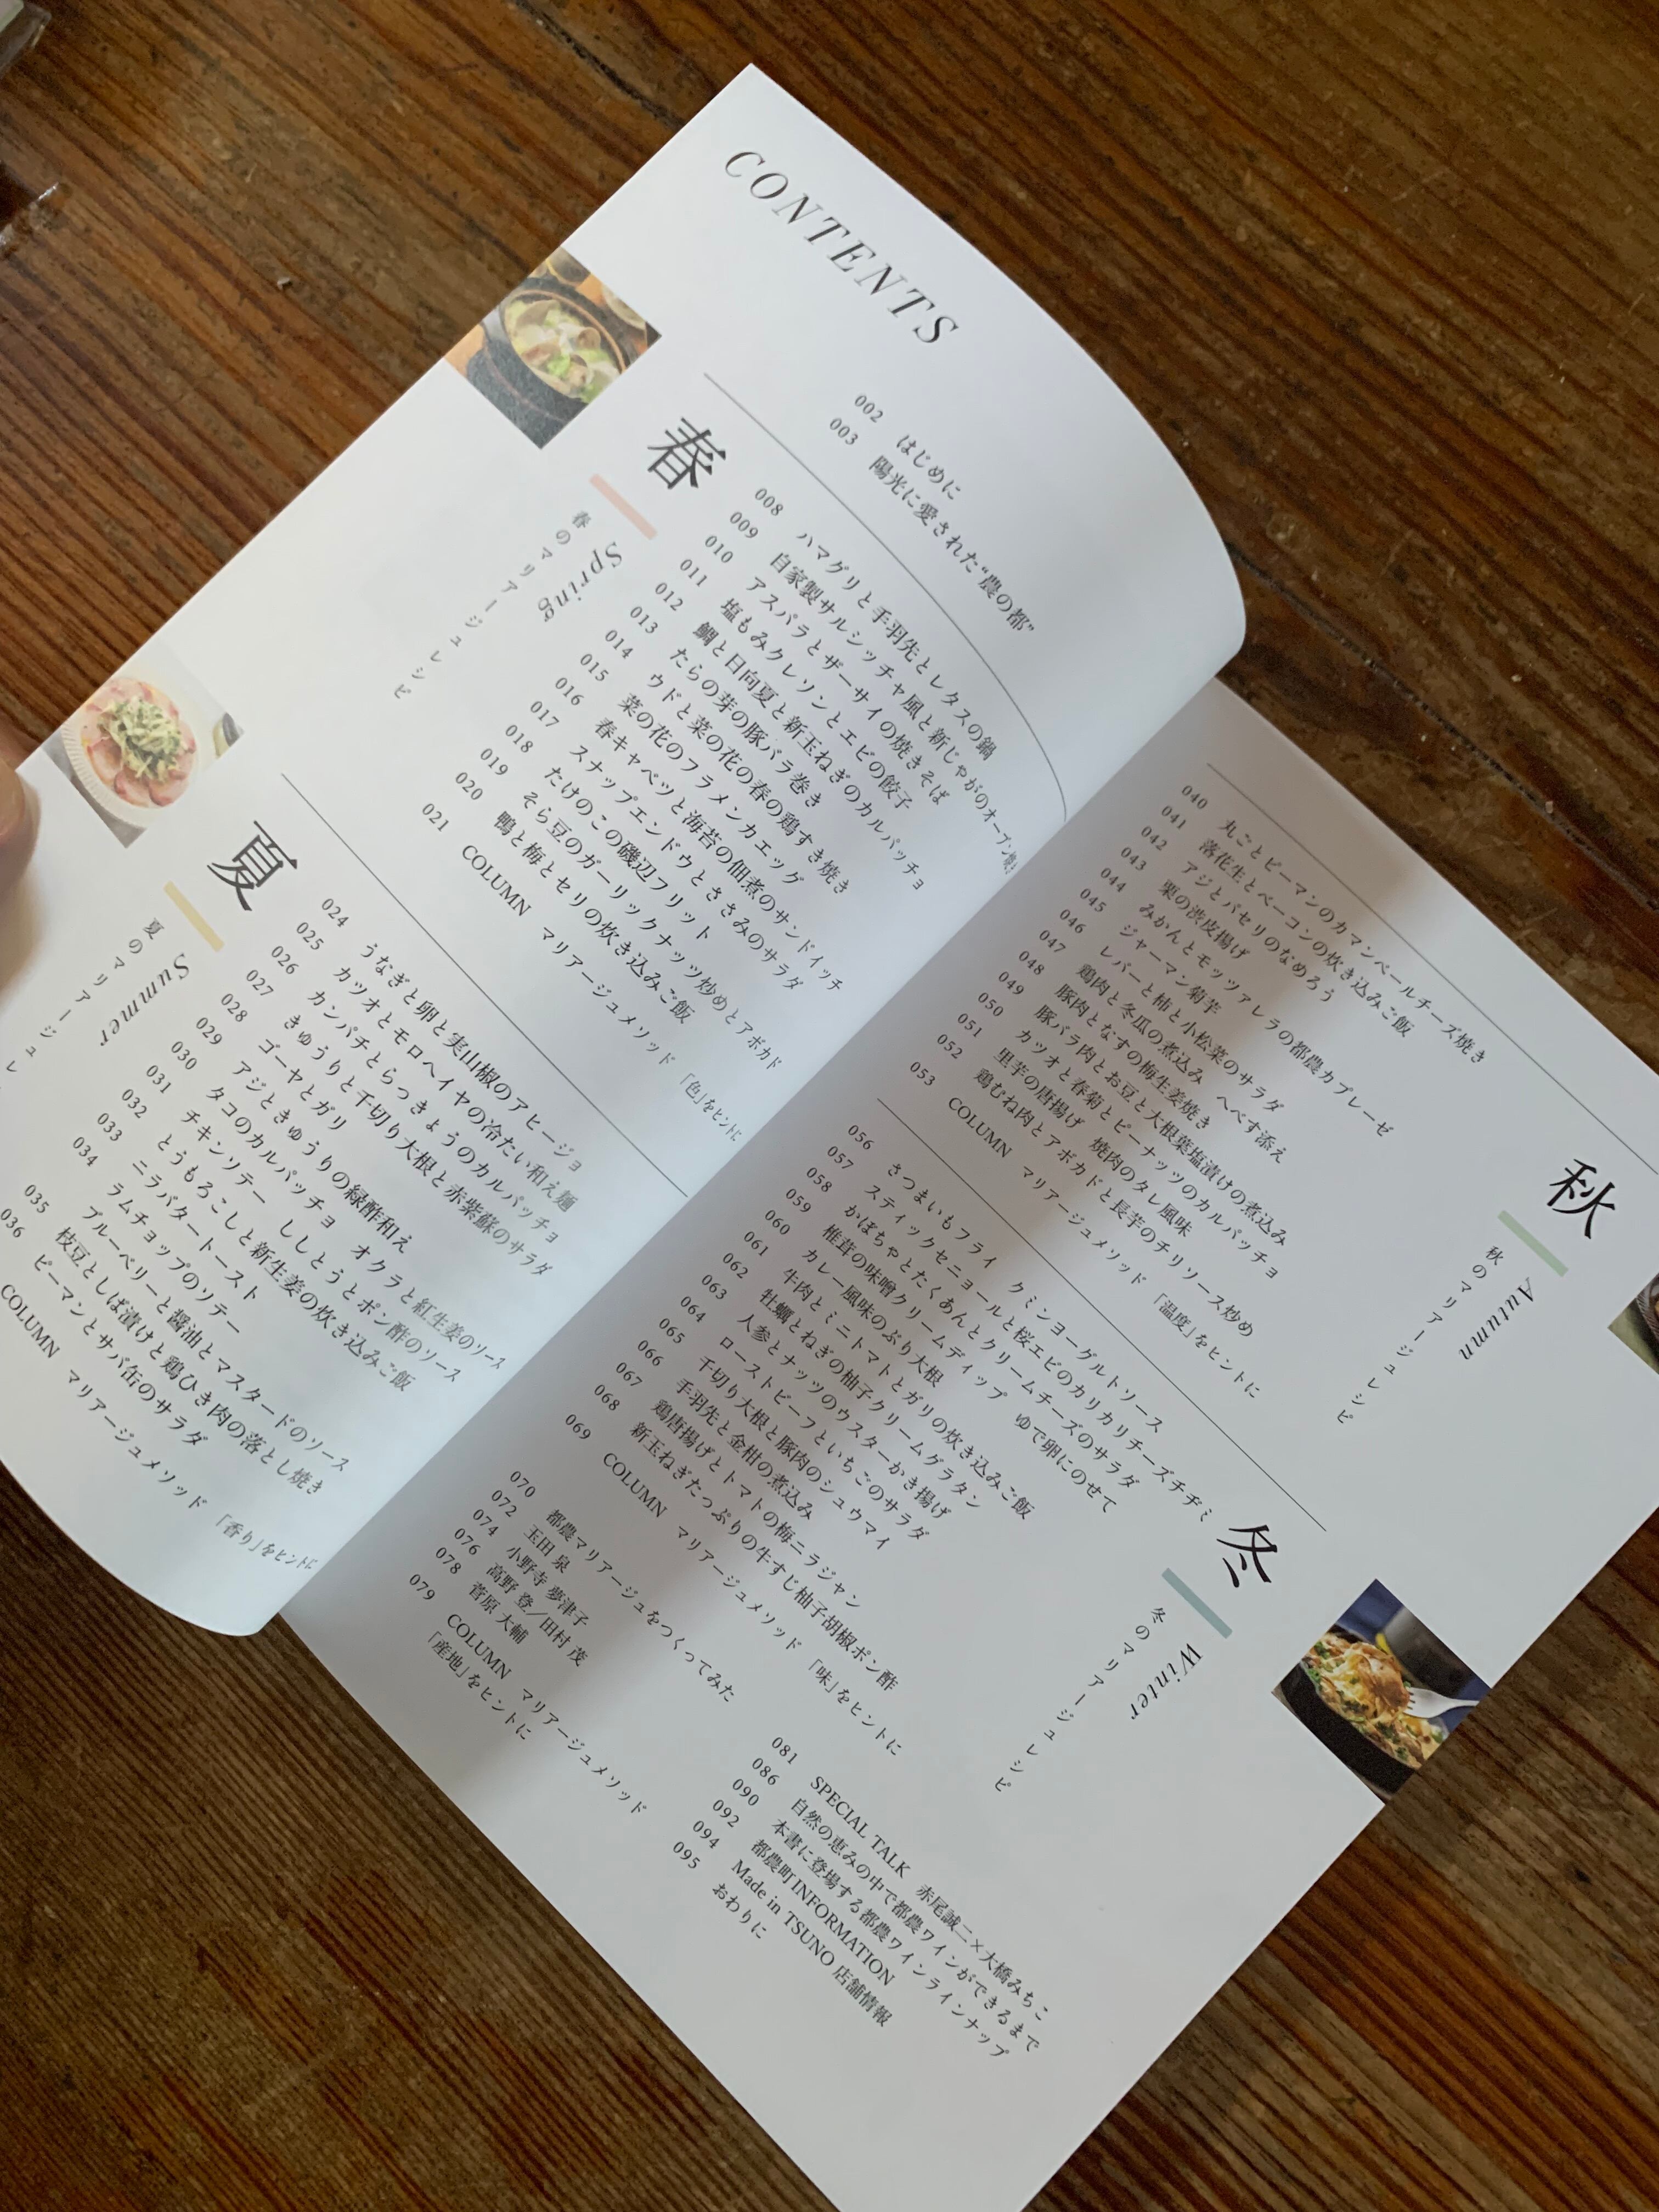 CONTENTS
002 はじめに
003 陽光に愛された“農の都”
春
Spring
春のマリアージュレシピ
008 ハマグリと手羽先とレタスの鍋
009 自家製サルシッチャ風と新じゃがのオーブン焼き
010 アスパラとザーサイの焼きそば
011 塩もみクレソンとエビの餃子
012 鯛と日向夏と新玉ねぎのカルパッチョ
013 たらの芽の豚バラ巻き
014 ウドと菜の花の春の鶏すき焼き
015 菜の花のフラメンカエッグ
016 春キャベツと海苔の佃煮のサンドイッチ
017 スナップエンドウとささみのサラダ
018 たけのこの磯辺フリット
019 そら豆のガーリックナッツ炒めとアボカド
020 鴨と梅とセリの炊き込みご飯
021 COLUMN マリアージュメソッド 「色」をヒントに
夏
Summer
夏のマリアージュレ
024 うなぎと卵と実山椒のアヒージョ
025 カツオとモロヘイヤの冷たい和え麺
026 カンパチとらっきょうのカルパッチョ
027 きゅうりと千切り大根と赤紫蘇のサラダ
028 ゴーヤとガリ
029 アジときゅうりの緑酢和え
030 タコのカルパッチョ オクラと紅生姜のソース
031 チキンソテー ししとうとポン酢のソース
032 とうもろこしと新生姜の炊き込みご飯
033 ニラバタートースト
034 ラムチョップのソテー
ブルーベリーと醤油とマスタードのソース
035 枝豆としば漬けと鶏ひき肉の落とし焼き
036 ピーマンとサバ缶のサラダ
COLUMN マリアージュメソッド 「香り」をヒントに
秋
Autumn
秋のマリアージュレシピ
040 丸ごとピーマンのカマンベールチーズ焼き
041 落花生とベーコンの炊き込みご飯
042 アジとパセリのなめろう
043 栗の渋皮揚げ
044 みかんとモッツァレラの都農カプレーゼ
045 ジャーマン菊芋
046 レバーと柿と小松菜のサラダ
047 鶏肉と冬瓜の煮込み へべす添え
048 豚肉となすの梅生姜焼き
049 豚バラ肉とお豆と大根葉塩漬けの煮込み
050 カツオと春菊とピーナッツのカルパッチョ
051 里芋の唐揚げ 焼肉のタレ風味
052 鶏むね肉とアボカドと長芋のチリソース炒め
053 COLUMN マリアージュメソッド 「温度」をヒントに
冬
Winter
冬のマリアージュレシピ
056 さつまいもフライ クミンヨーグルトソース
057 スティックセニョールと桜エビのカリカリチーズチヂミ
058 かぼちゃとたくあんとクリームチーズのサラダ
059 椎茸の味噌クリームディップ ゆで卵にのせて
060 カレー風味のぶり大根
061 牛肉とミニトマトとガリの炊き込みご飯
062 牡蠣とねぎの柚子クリームグラタン
063 人参とナッツのウスターかき揚げ
064 ローストビーフといちごのサラダ
065 千切り大根と豚肉のシュウマイ
066 手羽先と金柑の煮込み
067 鶏唐揚げとトマトの梅ニラジャン
068 新玉ねぎたっぷりの牛すじ柚子胡椒ポン酢
069 COLUMN マリアージュメソッド 「味」をヒントに
070 都農マリアージュをつくってみた
072 玉田 泉
074 小野寺 夢津子
076 高野 登／田村 茂
078 菅原 大輔
079 COLUMN マリアージュメソッド
「産地」をヒントに
081 SPECIAL TALK 赤尾誠二×大橋みちこ
086 自然の恵みの中で都農ワインができるまで
090 本書に登場する都農ワインラインナップ
092 都農町INFORMATION
094 Made in TSUNO 店舗情報
095 おわりに